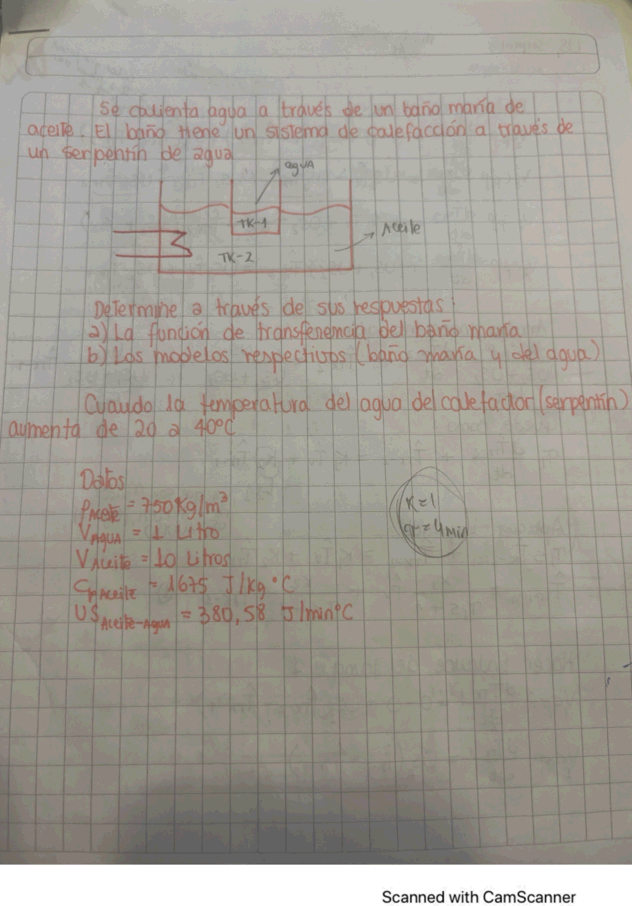 Se calienta agua a través de un baño maría de
aceite. El baño tiene un sistema de calefacción a través de
un serpentín de agua
agua
TK-1
Aceite
TK-2
Determine a través de sus respuestas:
a) La función de transferencia del baño maría
b) Los modelos respectivos (baño maría y del agua)
Cuando la temperatura del agua del calefactor (serpentín)
aumenta de 20 a 40°C
Datos
ρAceite = 750 Kg/m³
K=1
VAGUA = 1 Litro
τ=4min
VAceite = 10 Litros
CpAceite = 1675 J/Kg°C
USAceite-Agua = 380,58 J/min°C
Scanned with CamScanner